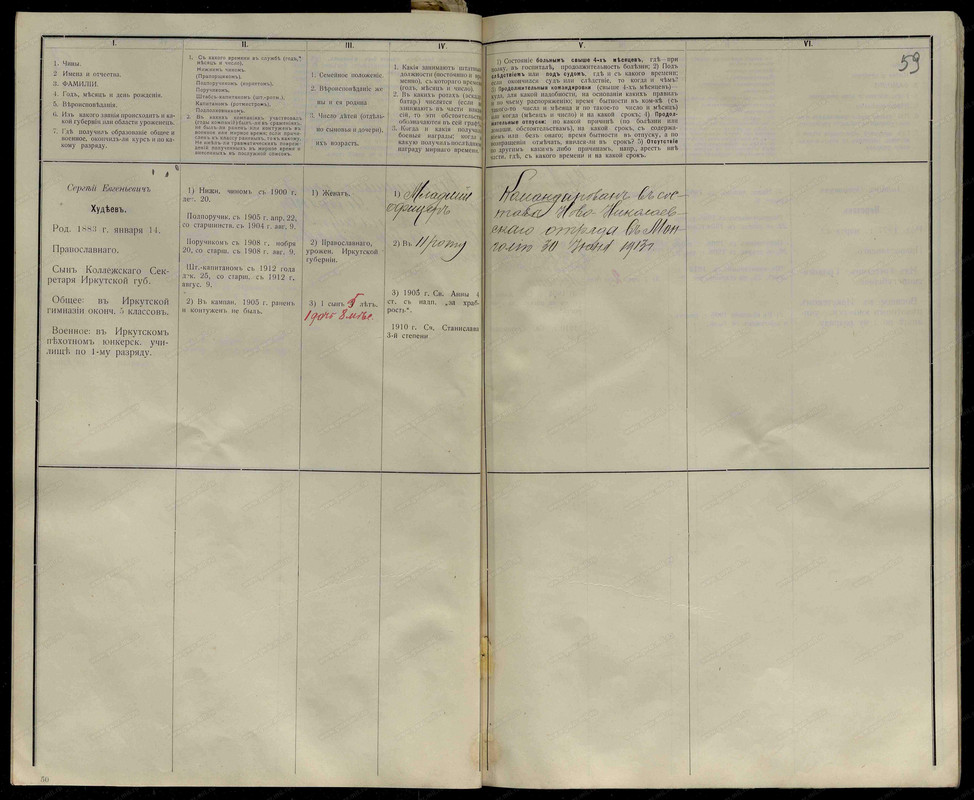 59
I.
1. Чины.
2 Имена и отчества.
3. ФАМИЛИИ.
4. Годъ, мѣсяцъ и день рожденія.
5. Вѣроисповѣданія.
6. Изъ какого званія происходитъ и ка-
кой губерніи или области уроженецъ.
7. Гдѣ получилъ образованіе общее и
военное, окончилъ-ли курсъ и по ка-
кому разряду.
II.
1. Съ какого времени въ службѣ (годъ,
мѣсяцъ и число).
Нижнимъ чиномъ.
(Прапорщикомъ).
Подпоручикомъ (корнетомъ).
Поручикомъ.
Штабсъ-капитаномъ (шт.-ротм.).
Капитаномъ (ротмистромъ).
Подполковникомъ.
2. Въ какихъ кампаніяхъ участвовалъ
III.
1. Семейное положеніе.
2. Вѣроисповѣданіе же
ны и ея родина
3. Число дѣтей (отдѣль-
но сыновья и дочери),
ихъ возрастъ.
IV.
1. Какія занимаетъ штатн
должности (постоянно и вре
менно), съ котораго времени
(годъ, мѣсяцъ и число).
2. Въ какихъ ротахъ (эскад
батар.) числится (если не
занимаетъ въ части вака
сіи, то эти обстоятельства
обозначаются въ сей графѣ
3. Когда и какія получилъ
боевыя награды; когда и
какую получилъ послѣднюю
награду мирнаго времени.
V.
1) Состояніе больнымъ свыше 4-хъ мѣсяцевъ, гдѣ при
чему, въ госпиталѣ, продолжительность болѣзни; 2) Подъ
слѣдствіемъ или подъ судомъ, гдѣ и съ какого времени;
если окончился судъ или слѣдствіе, то когда и чѣмъ?
3) Продолжительныя командировки (свыше 4-хъ мѣсяцевъ)—
куда, для какой надобности, на основаніи какихъ правилъ
и по чьему распоряженію; время бытности въ ком-кѣ (съ
такого-то числа и мѣсяца и по такое-то число и мѣсяцъ)
или когда (мѣсяцъ и число) и на какой срокъ; 4) Продол-
жительные отпуски: по какой причинѣ (по болѣзни или
домашн. обстоятельствамъ), на какой срокъ, съ содержа-
ніемъ или безъ онаго; время бытности въ отпуску, а по
возвращеніи отмѣчать, явился-ли въ срокъ? 5) Отсутствіе
по другимъ какимъ либо причинамъ, напр., арестъ внѣ
части, гдѣ, съ какого времени и на какой срокъ.
VI.
Сергѣй Евгеньевичъ
Худѣевъ.
Род. 1883 г. января 14.
Православнаго.
Сынъ Коллежскаго Сек-
ретаря Иркутской губ.
Общее: въ Иркутской
гимназіи оконч. 5 классовъ.
Военное: въ Иркутскомъ
пѣхотномъ юнкерск. учи-
лищѣ по 1-му разряду.
1) Нижн. чиномъ съ 1900 г.
дек. 20.
Подпоручик. съ 1905 г. апр. 22,
со старшинств. съ 1904 г. авг. 9.
Поручикомъ съ 1908 г. ноября
20, со старш. съ 1908 г. авг. 9.
Шт.-капитаномъ съ 1912 года
дек. 25, со старш. съ 1912 г.
август. 9.
2) Въ кампан. 1905 г. раненъ
и контуженъ не былъ.
1) Женатъ.
2) Православнаго,
урожен. Иркутской
губерніи.
3) 1 сынъ 5 лѣтъ.
1 дочь 8 мѣс.
1) Младшій
офицеръ
2) Въ 11 роту
3) 1905 г. Св. Анны 4
ст. съ надп. „за храб-
рость“.
1910 г. Св. Станислава
3-й степени
Командированъ въ сос-
тавѣ Ново-Николаев-
скаго отряда въ Мон-
голію 30 Іюня 1913 г.
50